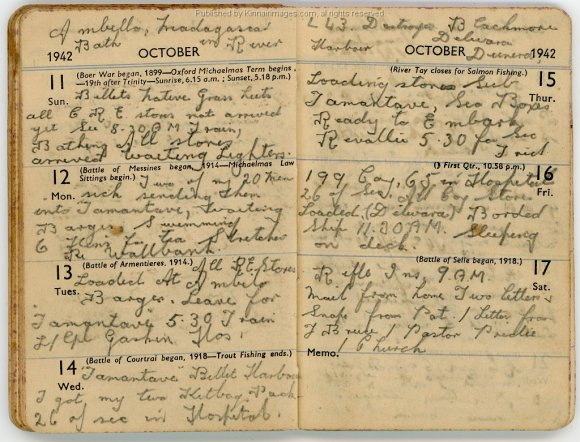 Published by Kinnainimages.com, all rights reserved
Ambello, Madagascar
Bath in River
1942 OCTOBER
11 (Boer War began, 1899—Oxford Michaelmas Term begins
—19th after Trinity—Sunrise, 6.15 a.m.; Sunset, 5.18 p.m.)
Sun. Billets Native Grass huts
all E R E stores not arrived
yet See 8-30 AM Train,
Bathing All stores
arrived waiting Lighters.
12 (Battle of Messines began, 1914—Michaelmas Law
Sittings begin.) Two of my 20 men
Mon. sick sending them
into Tamantave, waiting
Barges Swimming
6 for tea Stretcher
Wallbank.
13 (Battle of Armentieres, 1914.) All R.E. Stores
Tues. Loaded At Ambello
Barges. Leave for
"Tamantave" 5.30 Train
L/Cpl Gaskin Hos
14 (Battle of Courtrai began, 1918—Trout Fishing ends.)
Wed. "Tamantave" Billet Harbour
I got my two Kitbag Pack
26 of sec in Hospital.
L 43. Destroyer Blackmore
Harbour Delwara
OCTOBER Dunera 1942
(River Tay closes for Salmon Fishing.) 15
Thur.
Loading stores Sub
Tamantave, Sea Boxes
Ready to Embark
Revallie 5.30 for Sec
Tried
☽ First Qtr., 10.58 p.m.) 16
Fri.
199 Coy, 68 in Hospital
26 of Sec, All Coy Stores
Loaded, (Delwara) Borded
Ship 11.30 A.M. Sleeping
on deck.
(Battle of Selle began, 1918.) 17
Sat.
Rifle Ins, 9 AM.
Mail from home Two letters
Snaps from Pat. 1 Letter from
J Bruce 1 Pastor
Memo. 1 Church